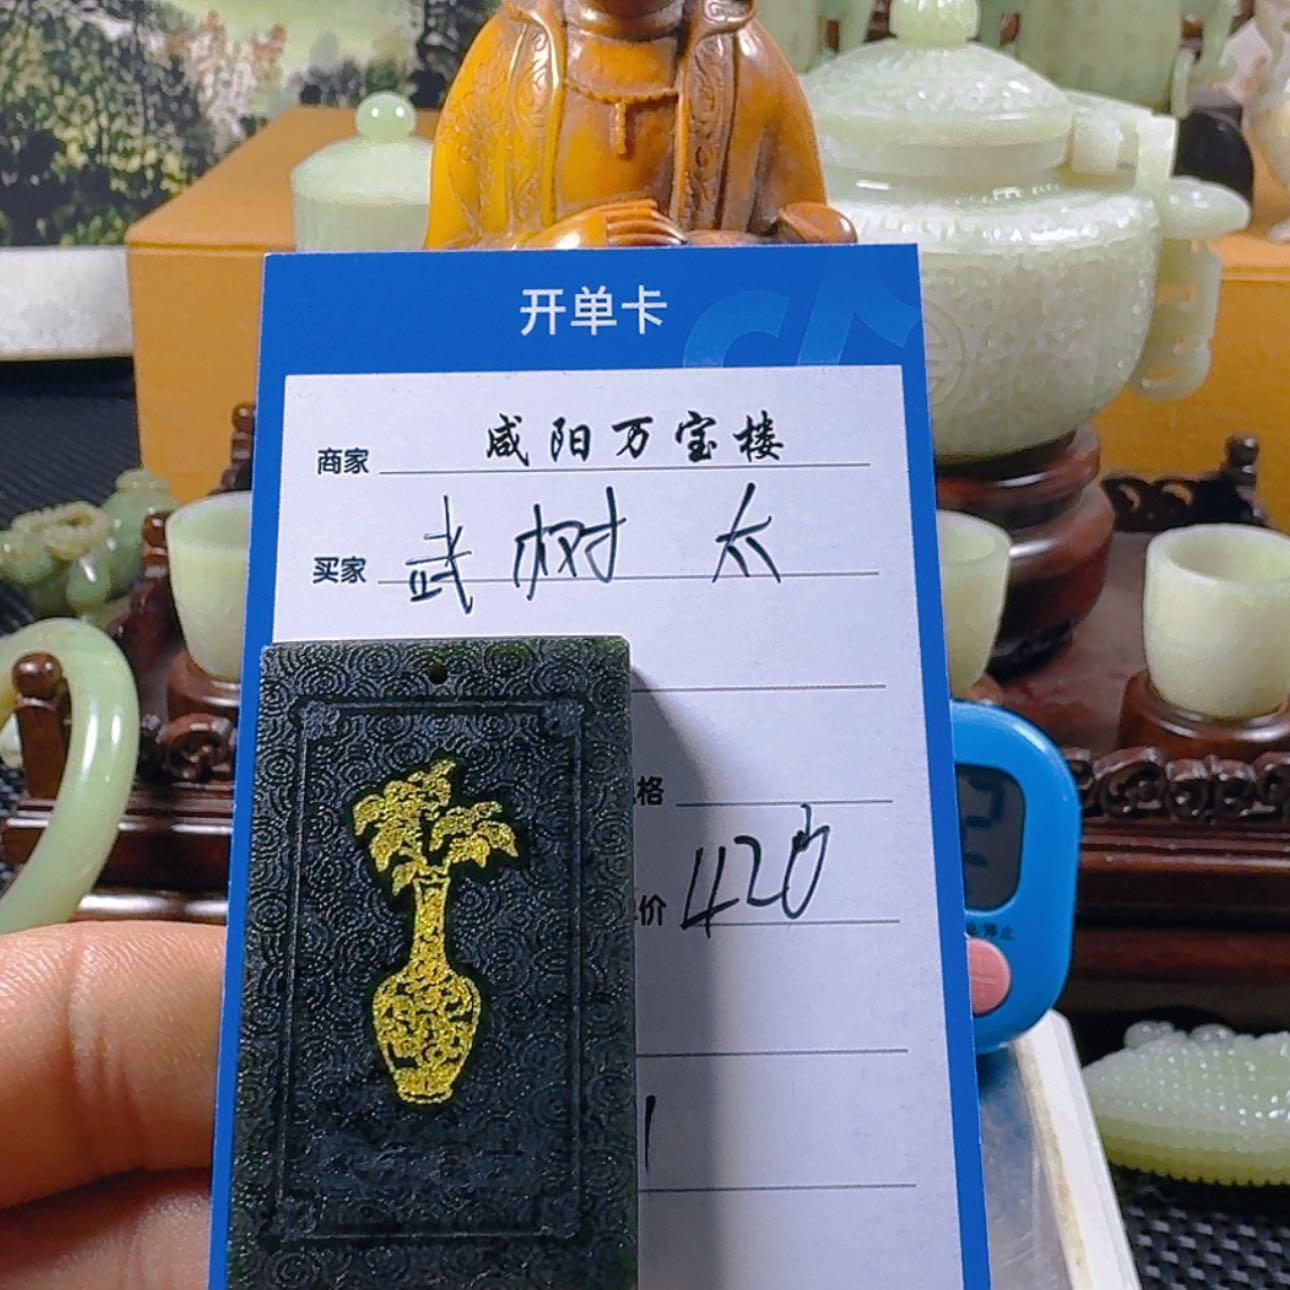 开单卡
商家 咸阳万宝楼
买家 武树太
格
价 420
1
停止